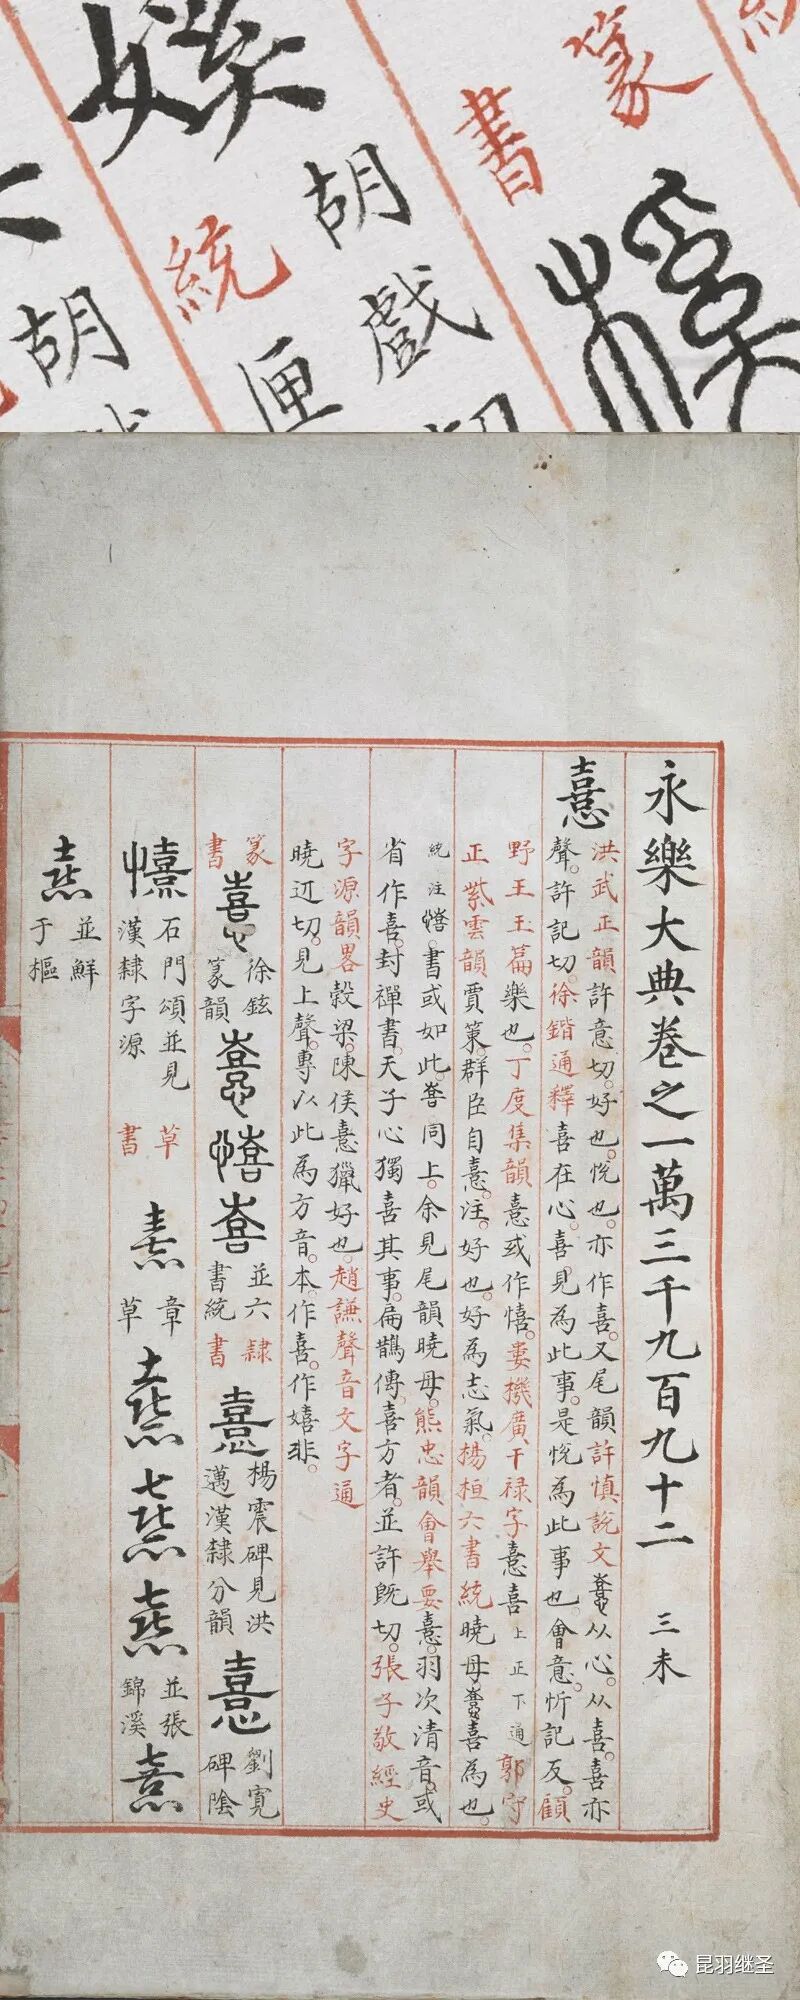 篆書
胡戲
統
匣
胡
永樂大典卷之一萬三千九百九十二 三未
憙
洪武正韻許意切。好也。悅也。亦作喜。又尾韻許慎說文憙从心。从喜。喜亦
聲。許記切。徐鍇通釋喜在心。喜見為此事。是悅為此事也。會意。忻記反。顧
野王玉篇樂也。丁度集韻憙或作憘。婁機廣干祿字憙喜上正下通郭守
正紫雲韻賈策。群臣自憙。注。好也。好為志氣。楊桓六書統曉母憙喜為也。
統注憘。書或如此。同上。余見尾韻曉母。熊忠韻會舉要憙。羽次清音。或
省作喜。封禪書。天子心獨喜其事。扁鵲傳。喜方者。並許旣切。張子敬經史
字源韻畧穀梁。陳侯憙獵好也。趙謙聲音文字通
曉近切。見上聲。專以此為方音。本作喜。作嬉非。
篆書 憙 徐鉉篆韻 憙 憘 並六書統 隸書 憙 楊震碑見洪邁漢隸分韻 憙 劉寬碑陰
憘 石門頌並見漢隸字源 草書 憙 章草 憙 憙 憙 並張錦溪 憙
憙 並鮮于樞
昆羽继圣